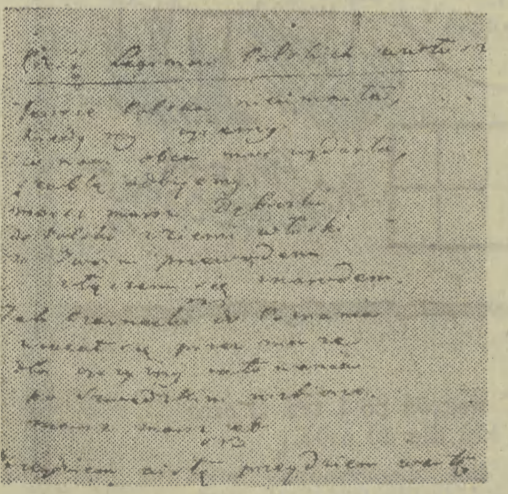 Pieśń Legionow Polskich
Jeszcze Polska nie umarła,
kiedy my żyiemy
co nam obca moc wydarła,
szablą odbiiemy.
marsz marsz Dąbrowski
do Polski z ziemi włoski
za Twoim przewodem
złączem się z narodem.
Jak Czarnecki do Poznania
wracał się przez morze
dla oyczyzny ratowania
po szwedzkim rozbiorze.
marsz marsz etc
Przeydziem Wisłę przeydziem Wartę